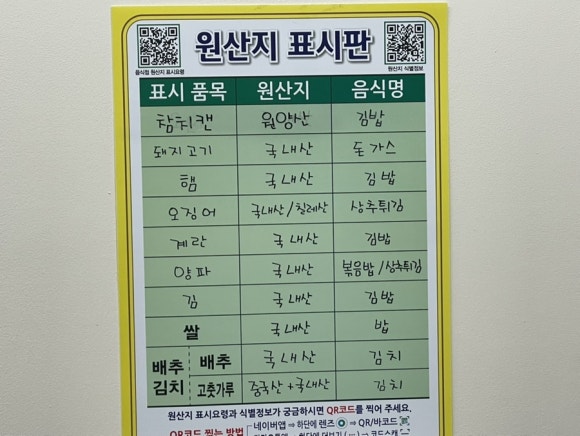 원산지 표시판
음식점 원산지 표시요령
원산지 식별정보
표시 품목 원산지 음식명
참치캔 원양산 김밥
돼지고기 국내산 돈가스
햄 국내산 김밥
오징어 국내산/칠레산 상추튀김
계란 국내산 김밥
양파 국내산 볶음밥/상추튀김
김 국내산 김밥
쌀 국내산 밥
배추김치 배추 국내산 김치
고춧가루 중국산+국내산 김치
원산지 표시요령과 식별정보가 궁금하시면 QR코드를 찍어 주세요.
QR코드 찍는 방법 네이버앱 ⇨ 하단에 렌즈 ⇨ QR/바코드
하단에 더보기(…) ⇨ 코드스캔